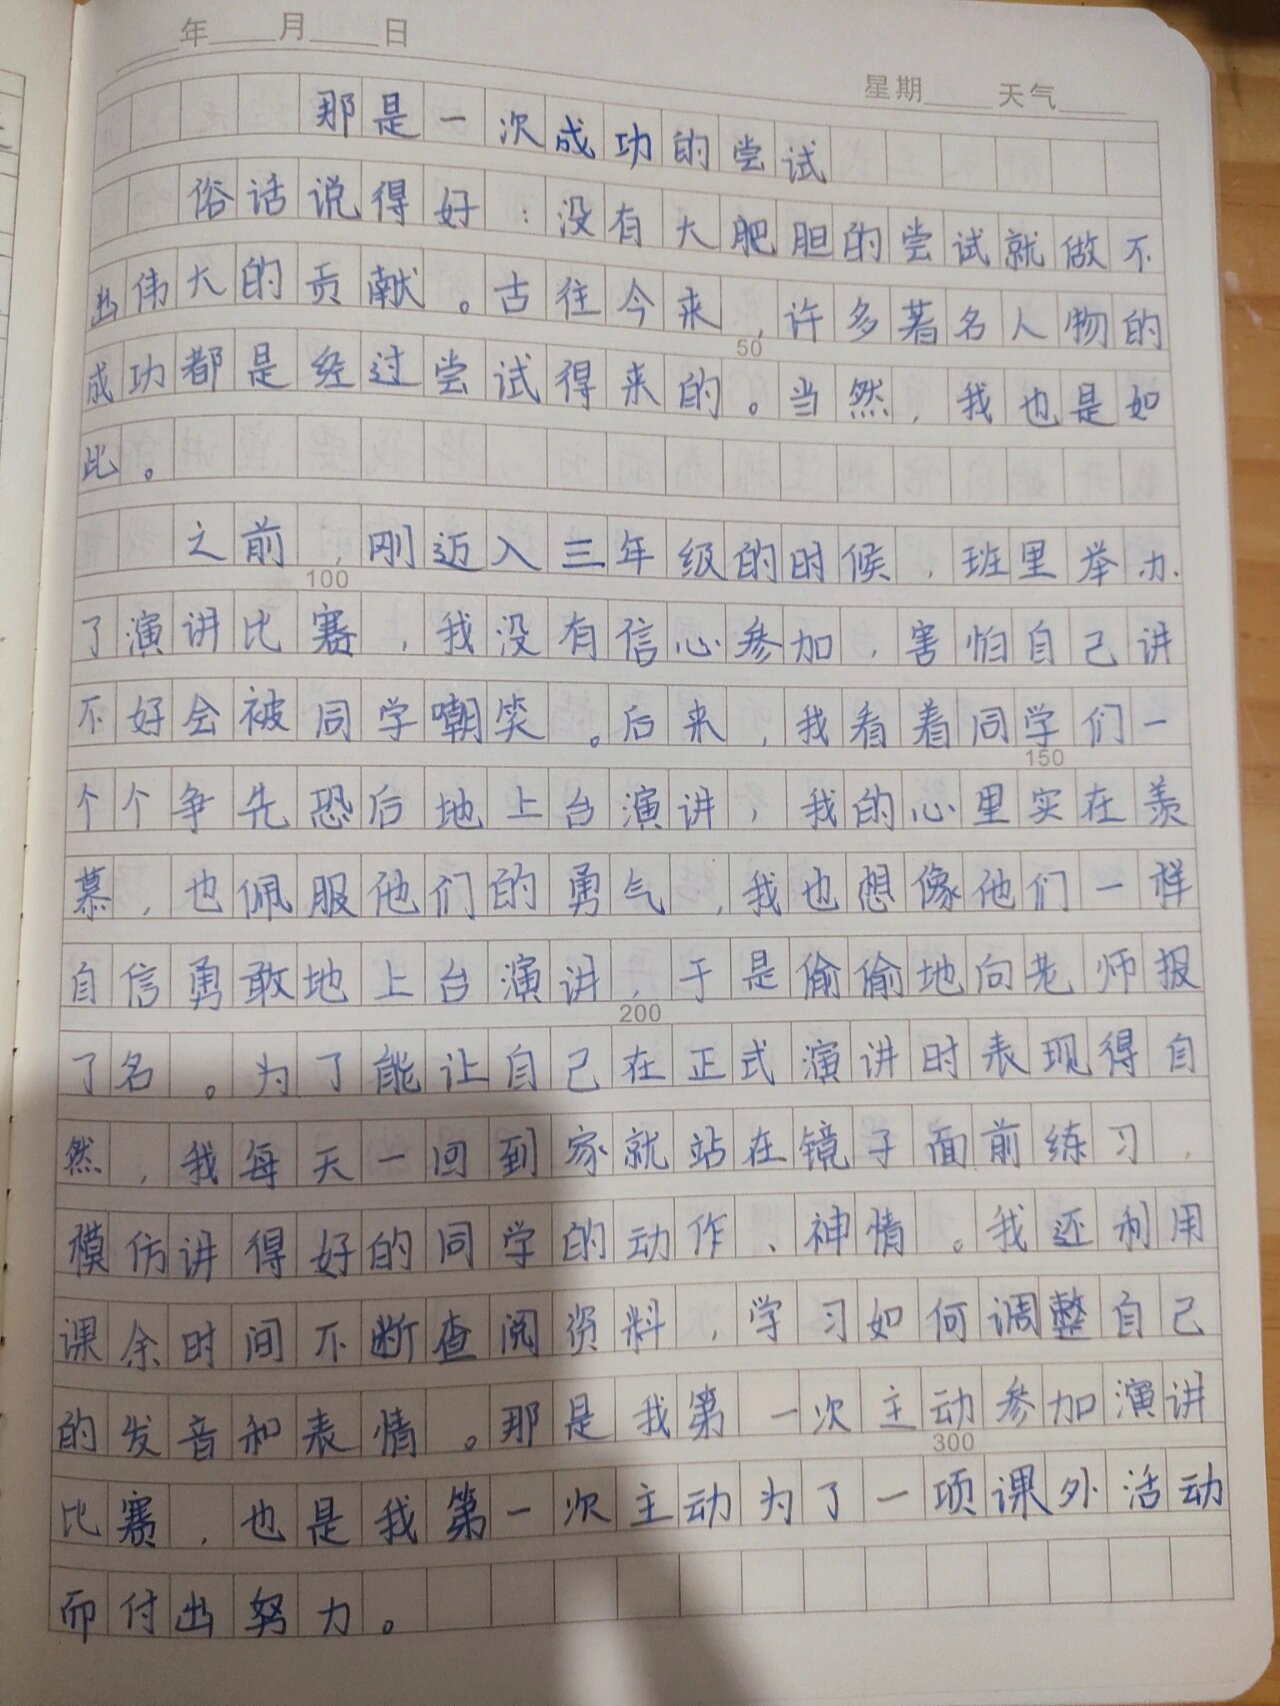 年 月 日
星期 天气
那是一次成功的尝试
俗话说得好：没有大肥胆的尝试就做不
出伟大的贡献。古往今来，许多著名人物的
50
成功都是经过尝试得来的。当然，我也是如
此。
之前，刚迈入三年级的时候，班里举办
100
了演讲比赛，我没有信心参加，害怕自己讲
不好会被同学嘲笑。后来，我看着同学们一
150
个个争先恐后地上台演讲，我的心里实在羡
慕，也佩服他们的勇气，我也想像他们一样
自信勇敢地上台演讲，于是偷偷地向老师报
200
了名。为了能让自己在正式演讲时表现得自
然，我每天一回到家就站在镜子面前练习，
模仿讲得好的同学的动作、神情。我还利用
课余时间不断查阅资料，学习如何调整自己
的发音和表情。那是我第一次主动参加演讲
300
比赛，也是我第一次主动为了一项课外活动
而付出努力。